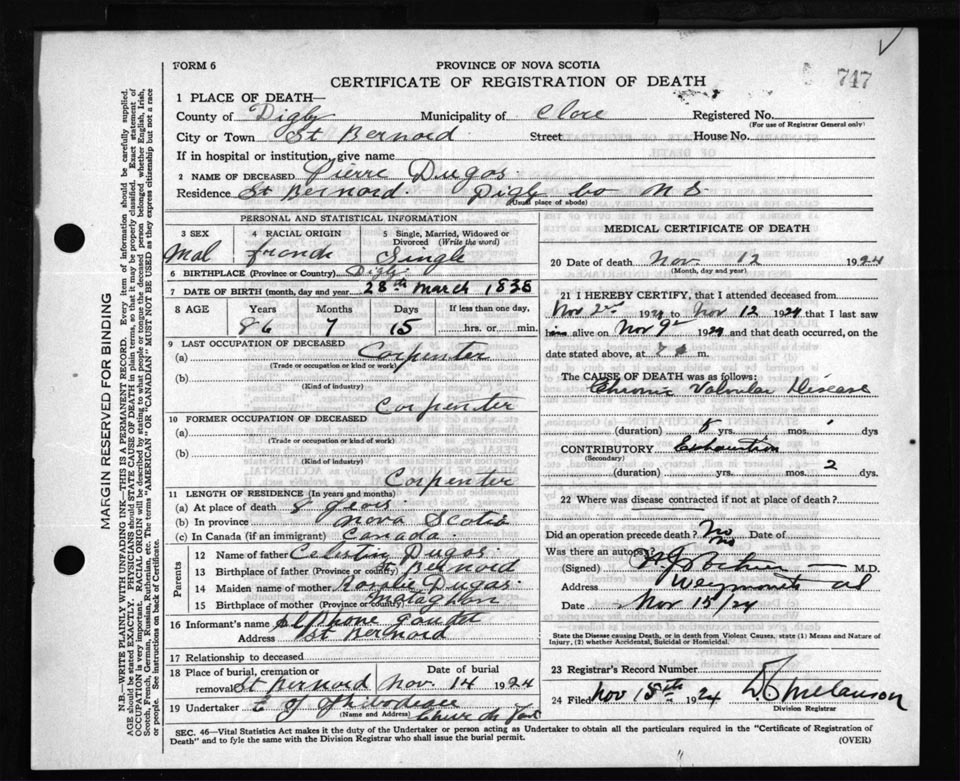 FORM 6
PROVINCE OF NOVA SCOTIA
CERTIFICATE OF REGISTRATION OF DEATH
747
1 PLACE OF DEATH—
County of Digby Municipality of Clare Registered No.
(For use of Registrar General only)
City or Town St Bernard Street House No.
If in hospital or institution, give name
2 NAME OF DECEASED Pierre Dugas
Residence St Bernard Digby Co N S
(Usual place of abode)
PERSONAL AND STATISTICAL INFORMATION
3 SEX 4 RACIAL ORIGIN 5 Single, Married, Widowed or Divorced (Write the word)
Mal french Single
6 BIRTHPLACE (Province or Country) Digby
7 DATE OF BIRTH (month, day and year) 28th March 1838
8 AGE Years Months Days If less than one day,
86 7 15 hrs. or min.
9 LAST OCCUPATION OF DECEASED
(a) Carpenter
(Trade or occupation or kind or work)
(b)
(Kind of industry)
Carpenter
10 FORMER OCCUPATION OF DECEASED
(a)
(Trade or occupation or kind of work)
(b)
(Kind of industry)
Carpenter
11 LENGTH OF RESIDENCE (In years and months)
(a) At place of death 8 years
(b) In province Nova Scotia
(c) In Canada (if an immigrant) Canada
Parents
12 Name of father Celestin Dugas
13 Birthplace of father (Province or country) St Bernard
14 Maiden name of mother Rosalie Dugas
15 Birthplace of mother (Province or country)
16 Informant's name
Address St Bernard
17 Relationship to deceased
18 Place of burial, cremation or removal St Bernard Date of burial Nov. 14 1924
19 Undertaker
(Name and Address)
MEDICAL CERTIFICATE OF DEATH
20 Date of death Nov. 12 1924
(Month, day and year)
21 I HEREBY CERTIFY, that I attended deceased from
Nov 2nd 1924 to Nov 12 1924 that I last saw
him alive on Nov 9th 1924 and that death occurred, on the
date stated above, at m.
The CAUSE OF DEATH was as follows:
Chronic Valvular Disease
(duration) yrs. mos. dys
CONTRIBUTORY Exhaustion
(Secondary)
(duration) yrs. mos. 2 dys.
22 Where was disease contracted if not at place of death?
Did an operation precede death? No
Was there an autopsy No
(Signed) M.D.
Address Weymouth
Date Nov 15/24
State the Disease causing Death, or in death from Violent Causes, state (1) Means and Nature of Injury, (2) whether Accidental, Suicidal or Homicidal.
23 Registrar's Record Number
24 Filed Nov 15th 1924
Division Registrar
SEC. 46—Vital Statistics Act makes it the duty of the Undertaker or person acting as Undertaker to obtain all the particulars required in the "Certificate of Registration of
Death" and to fyle the same with the Division Registrar who shall issue the burial permit.
(OVER)
MARGIN RESERVED FOR BINDING
N.B.—WRITE PLAINLY WITH UNFADING INK—THIS IS A PERMANENT RECORD. Every item of information should be carefully supplied.
AGE should be stated EXACTLY. PHYSICIANS should STATE CAUSE OF DEATH in plain terms, so that it may be properly classified. Exact statement of
OCCUPATION is very important. RACIAL ORIGIN will be described by stating to what people or tongue the deceased person belonged whether English, Irish,
Scotch, French, German, Russian, Ruthenian, etc. The terms "AMERICAN" OR "CANADIAN" MUST NOT BE USED as they express citizenship but not a race
or people. See instructions on back of Certificate.